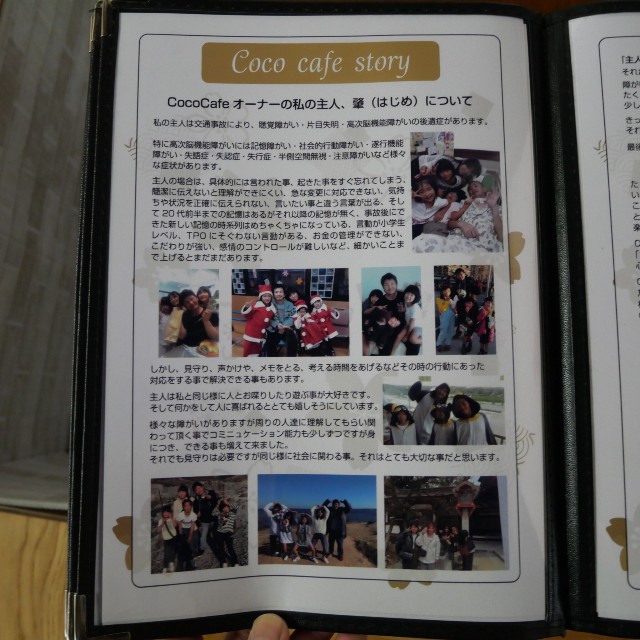 Coco cafe story
CocoCafe オーナーの私の主人、肇（はじめ）について
私の主人は交通事故により、聴覚障がい・片目失明・高次脳機能障がいの後遺症があります。
特に高次脳機能障がいには記憶障がい・社会的行動障がい・遂行機能
障がい・失語症・失認症・失行症・半側空間無視・注意障がいなど様々
な症状があります。
主人の場合は、具体的には言われた事、起きた事をすぐ忘れてしまう、
簡潔に伝えないと理解ができにくい、急な変更に対応できない、気持
ちや状況を正確に伝えられない、言いたい事と違う言葉が出る、そし
て 20 代前半までの記憶はあるがそれ以降の記憶が無く、事故後にで
きた新しい記憶の時系列はめちゃくちゃになっている、言動が小学生
レベル、TPO にそぐわない言動がある、お金の管理ができない、
こだわりが強い、感情のコントロールが難しいなど、細かいことま
で上げるとまだまだあります。
しかし、見守り、声かけや、メモをとる、考える時間をあげるなどその時の行動にあった
対応をする事で解決できる事もあります。
主人は私と同じ様に人とお喋りしたり遊ぶ事が大好きです。
そして何かをして人に喜ばれるととても嬉しそうにしています。
様々な障がいがありますが周りの人達に理解してもらい関
わって頂く事でコミュニケーション能力も少しずつですが身
につき、できる事も増えて来ました。
それでも見守りは必要ですが同じ様に社会に関わる事。それはとても大切な事だと思います。
「主人
それが
障が
たく
少し
きっ
それ
最後